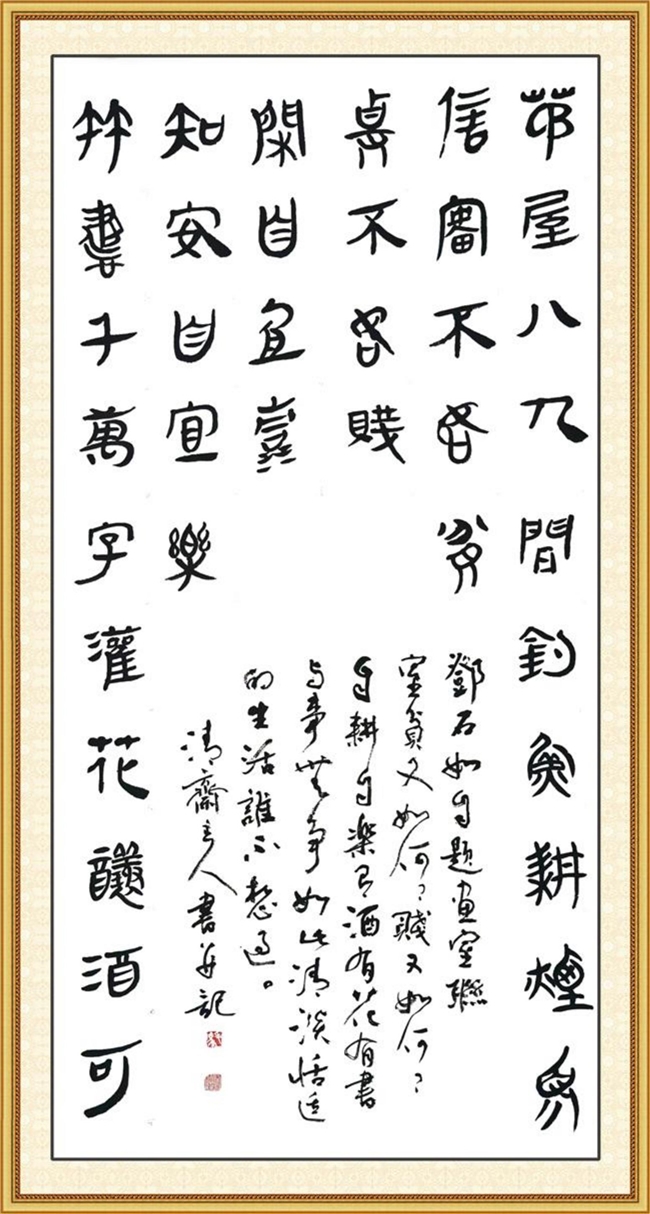 茆屋八九間釣魚耕煙須
信富不如貧
貴不如賤
竹書千萬字灌花釀酒可
知安自宜樂
閑自宜壽
鄧石如自題畫室聯
室貧又如何？賤又如何？
自耕自樂有酒有花有書
与事無爭如此清淡恬适
的生活誰不想过。
清齋主人書並記